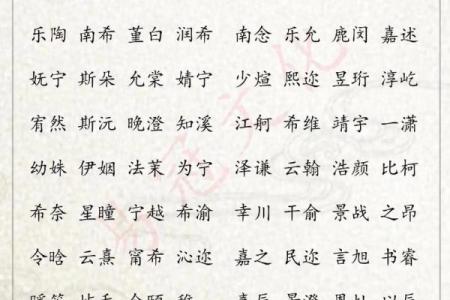 乐陶 南希 堇白 润希 南念 乐允 鹿闵 嘉述
妩宁 斯朵 允棠 婧宁 少煊 熙迩 昱珩 淳屹
宥然 斯沅 晚澄 知溪 江舸 希维 靖宇 一潇
幼姝 伊姻 法茉 为宁 泽谦 云翰 浩颜 比柯
希奈 星瞳 宁越 希渝 幸川 干俞 景战 之昂
令晗 云熹 甯希 沁迩 嘉之 民迩 言旭 书睿